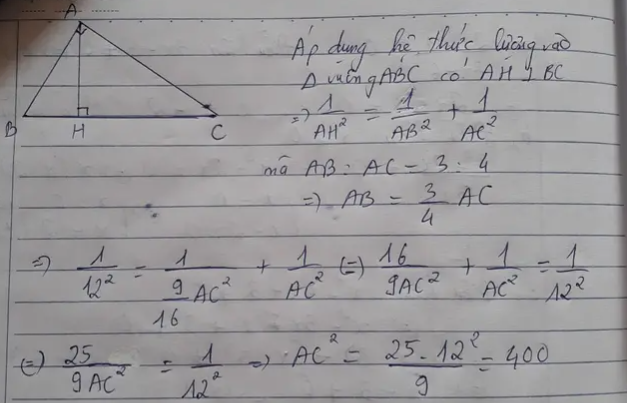 A
B H C
Áp dụng hệ thức lượng vào
Δ vuông ABC có AH ⊥ BC
=> 1/AH² = 1/AB² + 1/AC²
mà AB : AC = 3 : 4
=> AB = 3/4 AC
=> 1/12² = 1/(9/16 AC²) + 1/AC² (=) 16/9AC² + 1/AC² = 1/12²
(=) 25/9AC² = 1/12² => AC² = 25.12²/9 = 400